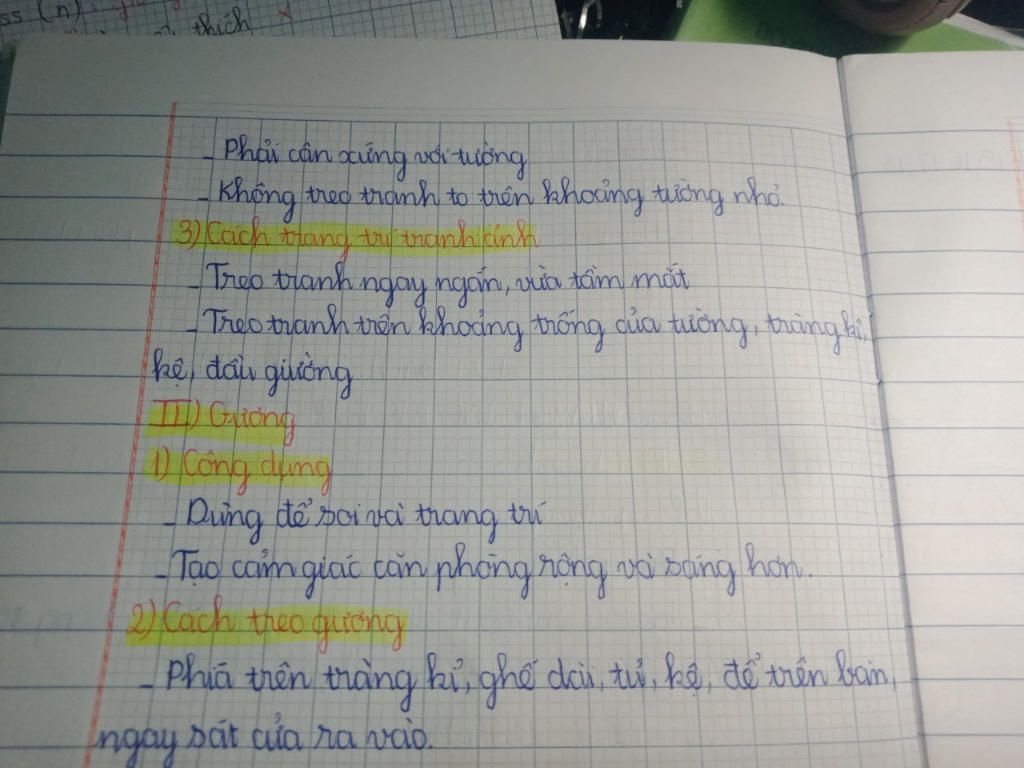 ss (n):
thích
- Phải cân xứng với tường
- Không treo tranh to trên khoảng tường nhỏ.
3) Cách trang trí tranh ảnh
- Treo tranh ngay ngắn, vừa tầm mắt
- Treo tranh trên khoảng trống của tường, tràng kỉ,
kệ, đầu giường
III) Gương
1) Công dụng
- Dùng để soi và trang trí
- Tạo cảm giác căn phòng rộng và sáng hơn.
2) Cách treo gương
- Phía trên tràng kỉ, ghế dài, tủ, kệ, để trên bàn,
ngay sát cửa ra vào.